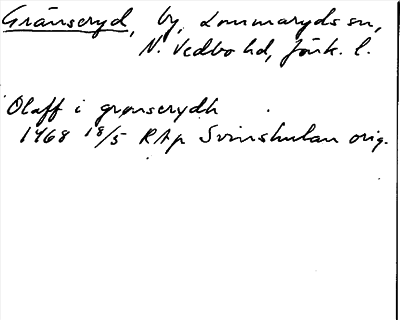 Gränseryd, by, Lommaryds sn,
N. Vedbo hd, Jönk. l.
Olaff i grenserydh
1468 18/5 RAp Svinshulan orig.